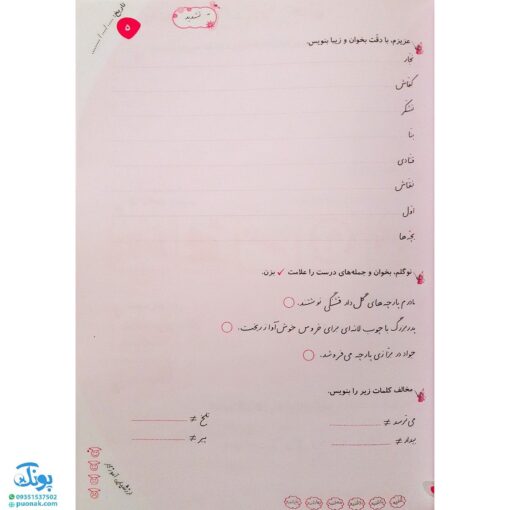 تاریخ: .../.../...
۵
ــّـ تشدید
عزیزم، با دقّت بخوان و زیبا بنویس.
نجّار
کفّاش
بنّا
قنّادی
نقّاش
اوّل
بچّه‌ها
نوگلم، بخوان و جمله‌های درست را علامت ✓ بزن.
مادرم پارچه‌های گل‌دار قشنگی نوشتند.
پدربزرگ با چوب لانه‌ای برای خروس خوش‌آواز ریخت.
جواد در بزّازی پارچه می‌فروشد.
مخالف کلمات زیر را بنویس.
می‌ترسد ≠ ........ تلخ ≠ ........
بیدار ≠ ........ پیر ≠ ........
پونک
09351537502
puonak.com